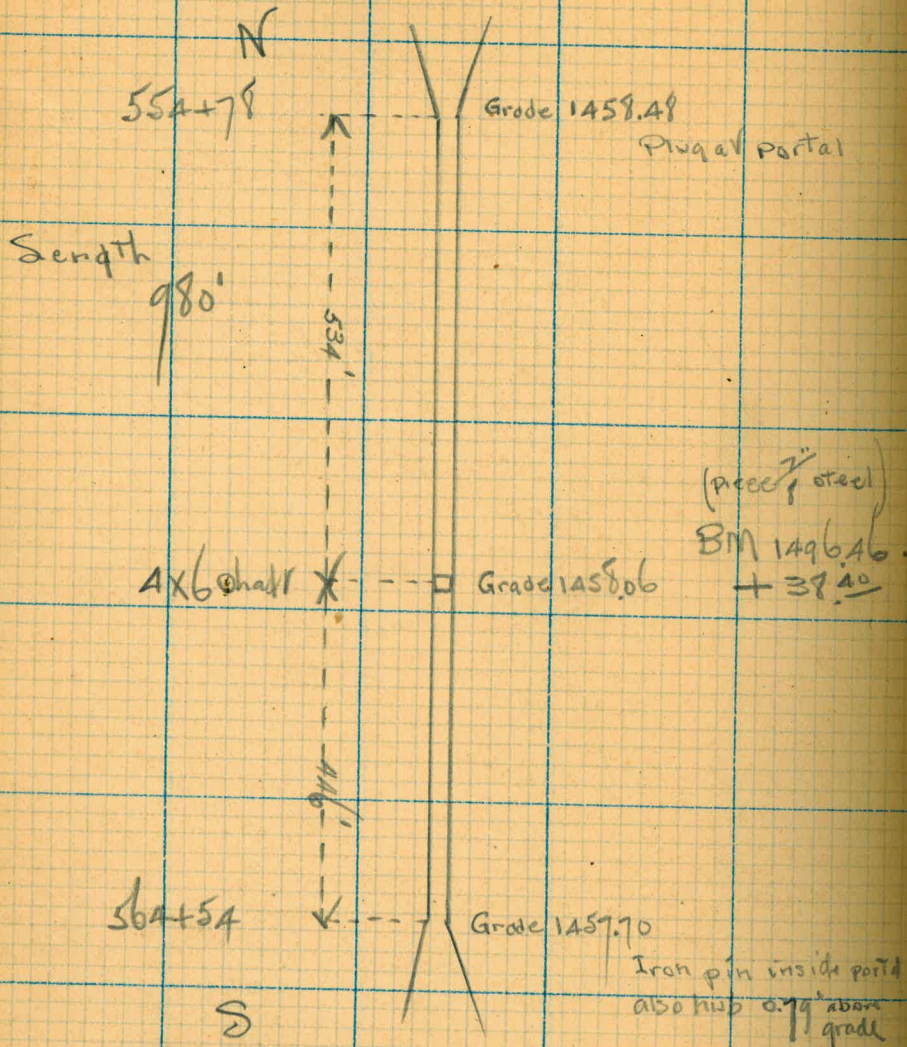 N
554+78
Grade 1458.48
Plug at portal
Length
980'
534'
(piece 7/8" steel)
BM 1496.46
4x6 shaft
Grade 1458.06
+ 38.40
446'
564+54
Grade 1457.70
Iron pin inside portal
also hub 0.79' above
grade
S